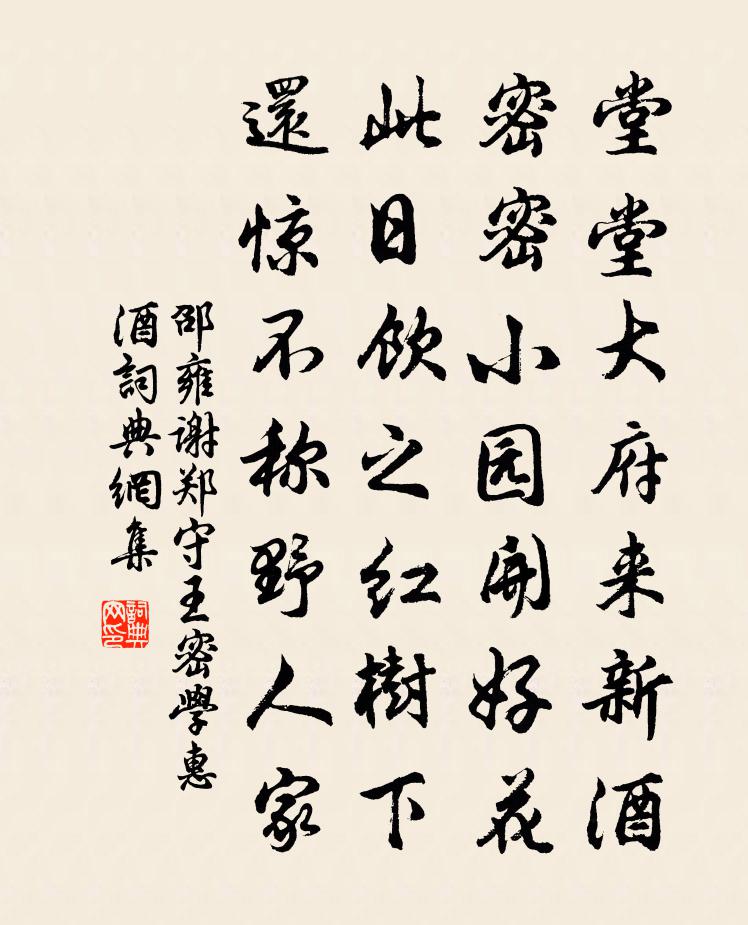 堂堂大府来新酒
密密小园開好花
此日飲之红樹下
還惊不称野人家
邵雍谢郑守王密學惠
酒詞典網集
詞典网印